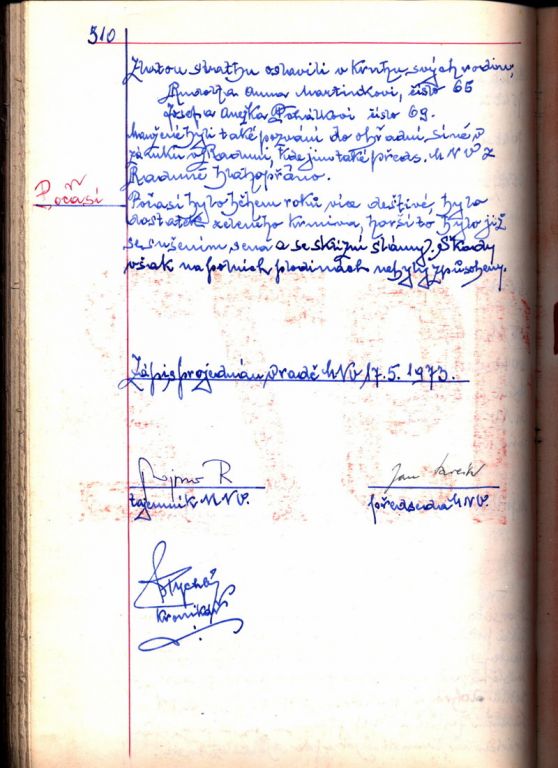 310
Zlatou svatbu oslavili v kruhu svých rodin,
Rudolf a Anna Martinkovi, číslo 65
Josef a Anežka číslo 69.
Manželé byli také pozváni do obřadní síně, v
zámku v Raduni, kde jim také předs. MNV z
Raduně blahopřáno.
Počasí
Počasí bylo během roku více deštivé, bylo
dostatek zeleného krmiva, horší to bylo již
se sušením sena a se sklizní slámy. Škody
však na polních plodinách nebyly způsobeny.
Zápis projednán v radě MNV 17.5.1973.
R
Jan
tajemník MNV.
předseda MNV.
Kronikář